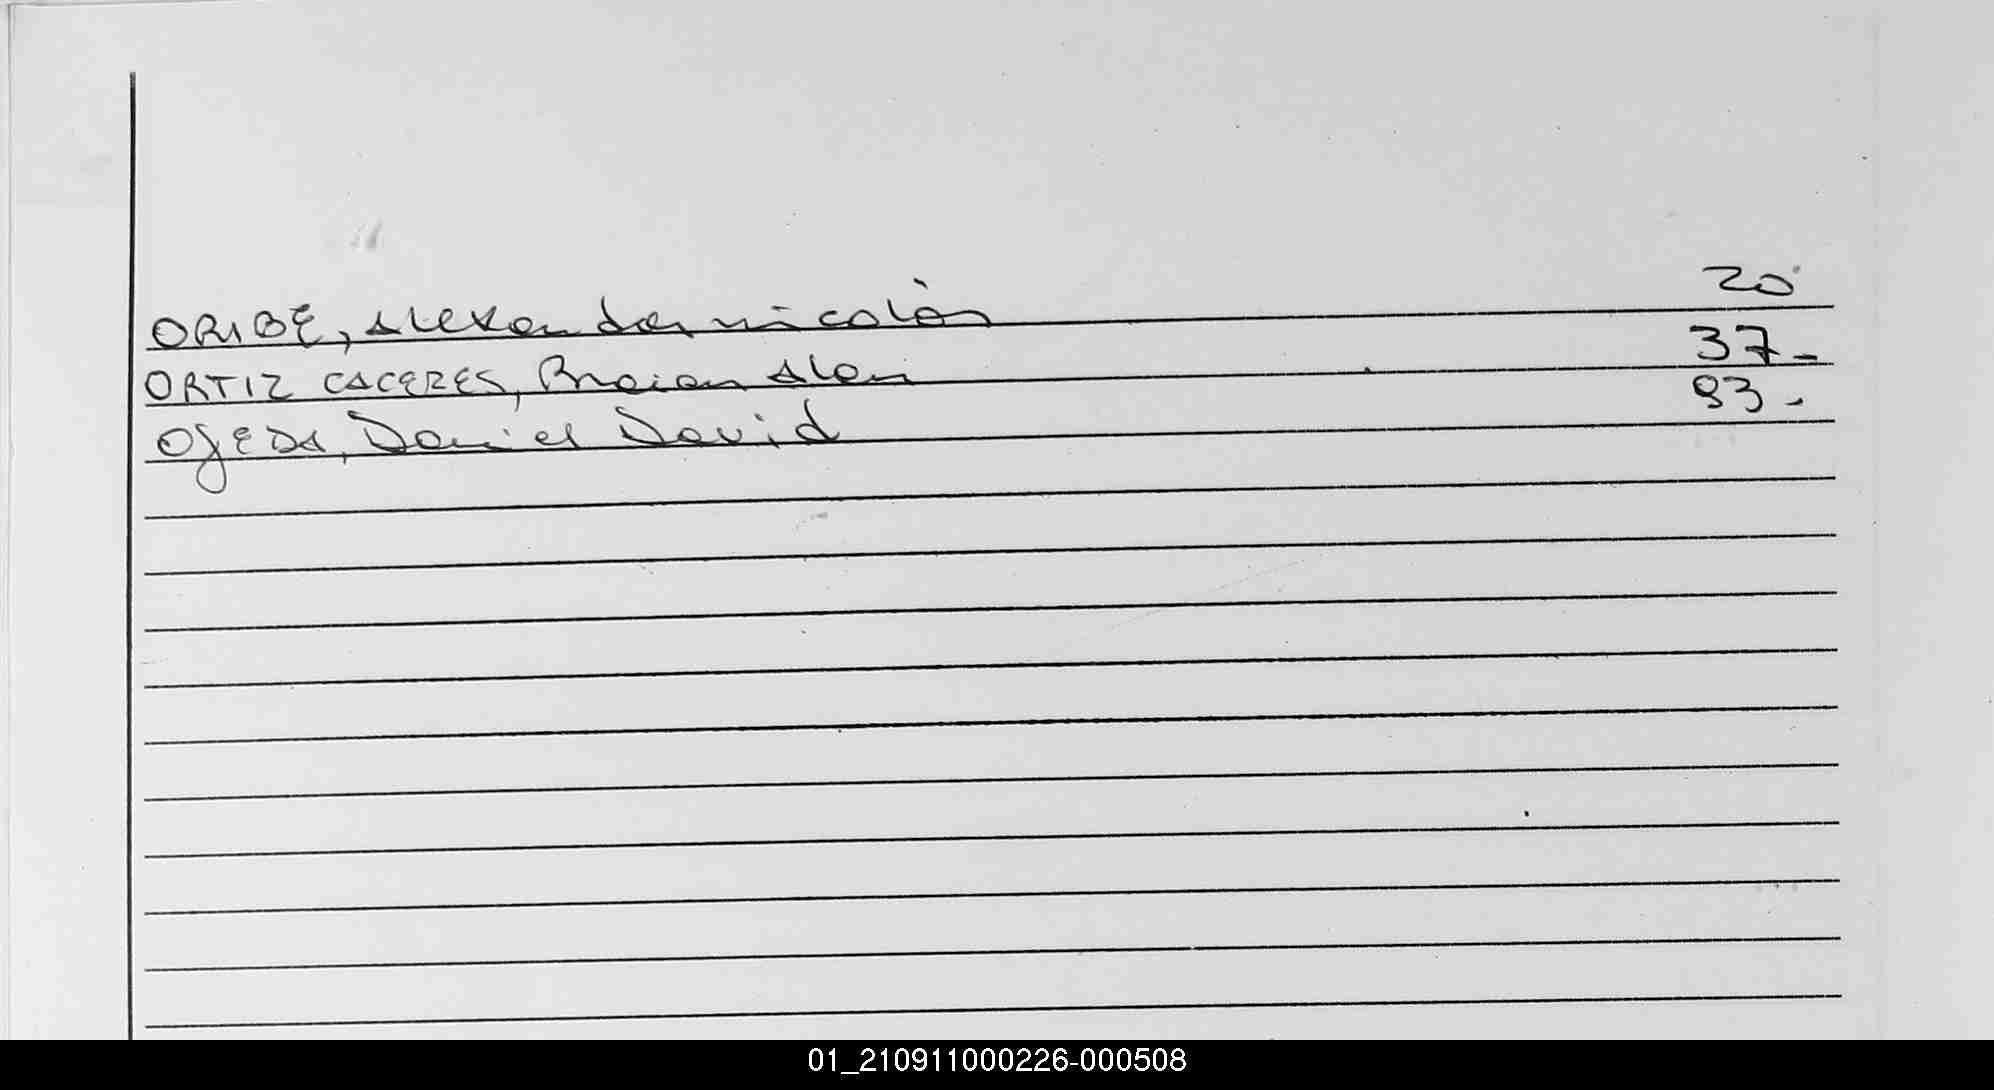 ORIBE, Alexander nicolás 20
ORTIZ CACERES, Braian Alan 37-
OJEDA, Daniel David 93-
01_210911000226-000508